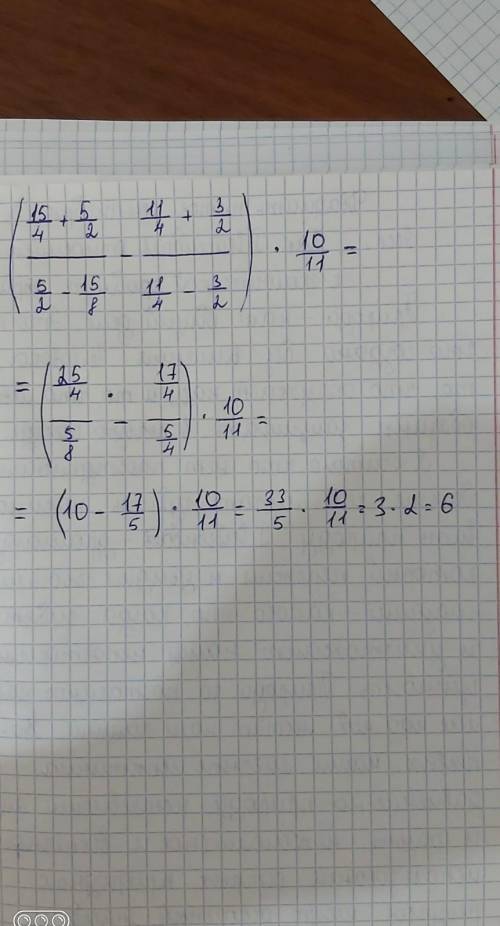 (15/4 + 5/2 / 5/2 - 15/8 - 11/4 + 3/2 / 11/4 - 3/2) · 10/11 =
= (25/4 / 5/8 · - 17/4 / 5/4) · 10/11 =
= (10 - 17/5) · 10/11 = 33/5 · 10/11 = 3 · 2 = 6